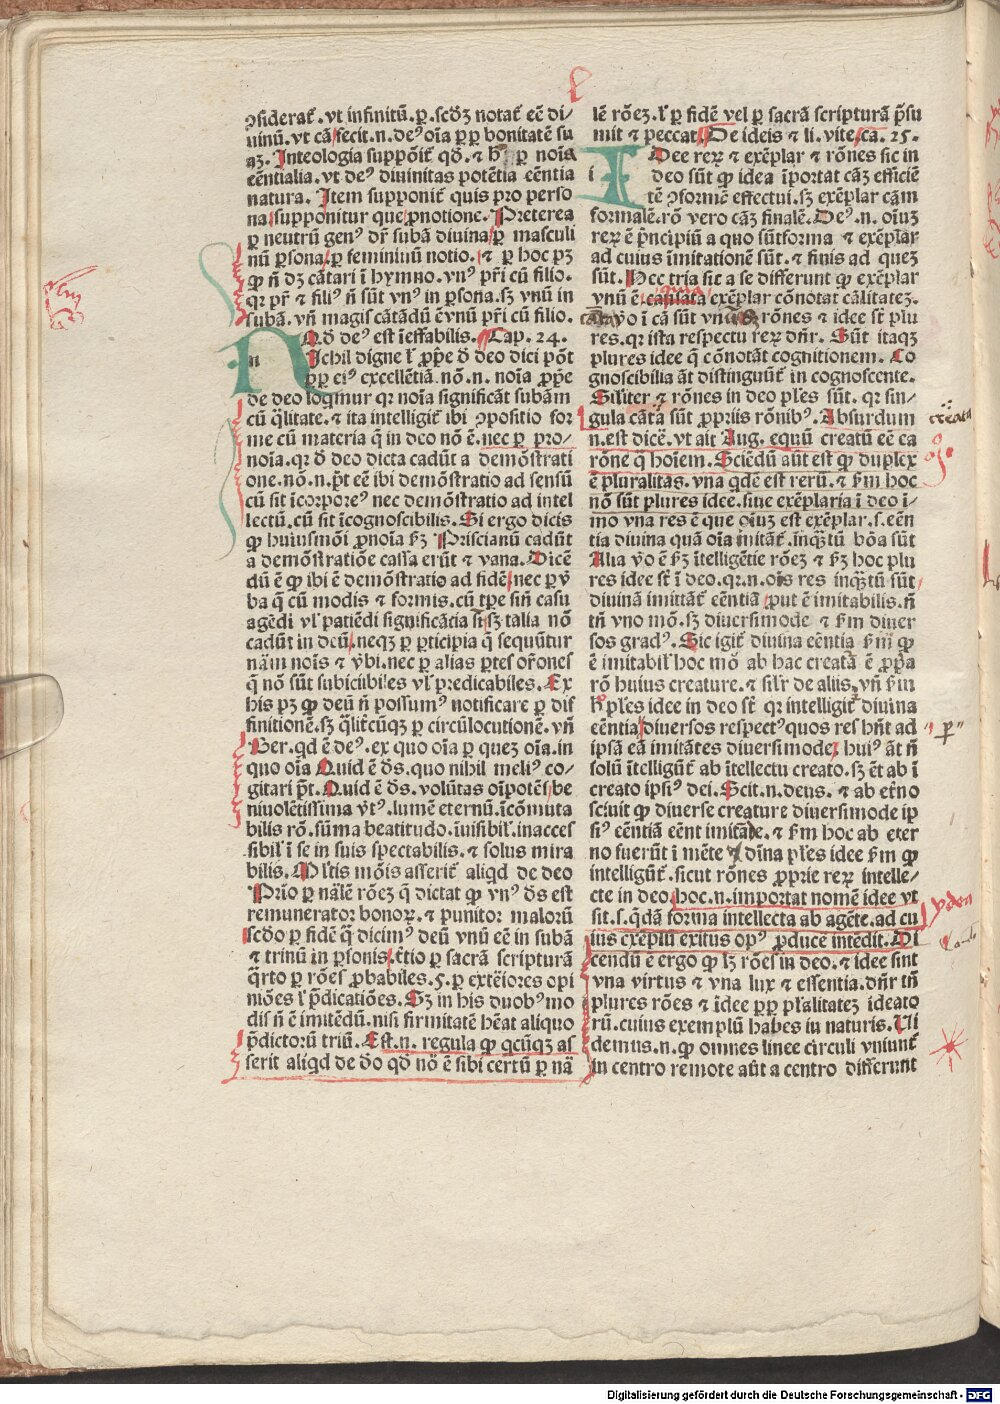 ꝯſiderat᷑ . vt infinitũ . ꝑ . ſcd̓ꝫ notat᷑ eẽ di⸗
uinũ . vt cã fecit . n . deꝰ oĩa ꝓꝑ bonitatẽ ſu
aꝫ . In theologia ſuppõit᷑ qd̓ . ꝑ noĩa
eẽntialia . vt deꝰ diuinitas potẽtia eẽntia
natura . Item ſupponit᷑ quis pro perſo
na ſupponitur que ꝓ notione . Preterea
ꝑ neutrũ genꝰ dr̃ ſubã diuina ꝑ maſculi
nũ ꝑſona . ꝑ femininũ notio . ⁊ ꝑ hoc pꝫ
ꝙ ñ dꝫ cãtari ĩ hymno . vnꝰ pr̃i cũ filio .
qꝛ pr̃ ⁊ filiꝰ ñ ſũt vnꝰ in ꝑſona . ſꝫ vnũ in
ſubã . vñ magis cãtãdũ ẽ vnũ pr̃i cũ filio .
Qd̓ deꝰ eſt ĩeffabilis . Cap . 24 .
Nichil digne l̓ ꝓp̃e d̓ deo dici põt
ꝓꝑ eiꝰ excellẽtiã . nõ . n . noĩa ꝓp̃e
de deo loqͥmur qꝛ noĩa ſignificãt ſubãm
cũ q̃litate . ⁊ ita intelligit᷑ ibi ꝯpoſitio for
me cũ materia q̃ in deo nõ ẽ . nec ꝑ pro⸗
noĩa . qꝛ d̓ deo dicta cadũt a demõſtrati
one . nõ . n . p̃t eẽ ibi demõſtratio ad ſenſũ
cũ ſit ĩcorporeꝰ nec demõſtratio ad intel
lectũ . cũ ſit ĩcognoſcibilis . Si ergo dicis
ꝙ huiuſmõi ꝓnoĩa ẜꝫ Priſcianũ cadũt
a demõſtratiõe caſſa erũt ⁊ vana . Dicẽ
dũ ẽ ꝙ ibi ẽ demõſtratio ad fidẽ nec ꝑ v̓
ba q̃ cũ modis ⁊ formis . cũ tꝑe ſiñ caſu
agẽdi vl̓ patiẽdi ſignificãtia ſt̃ ſꝫ talia nõ
cadũt in deũ . neqꝫ ꝑ ꝑticipia q̃ ſequũtur
nãm noĩs ⁊ v̓bi . nec ꝑ alias ꝑtes or̃ones
q̃ nõ ſũt ſubiicibiles vl̓ predicabiles . Ex
his pꝫ ꝙ deũ ñ poſſumꝰ notificare ꝑ dif
finitionẽ . ſꝫ q̃lit᷑cũqꝫ ꝑ circũlocutionẽ . vñ
Ber . qd ẽ deꝰ . ex quo oĩa ꝑ quẽ oĩa . in
quo oĩa Quid ẽ d̓s . quo nihil meliꝰ co⸗
gitari p̃t . Quid ẽ d̓s . volũtas oĩpotẽs be
niuolẽtiſſima v̓tꝰ . lumẽ eternũ . ĩcõmuta
bilis rõ . ſũma beatitudo . ĩuiſibil̓ . inacceſ
ſibil̓ ĩ ſe in ſuis ſpectabilis . ⁊ ſolus mira
bilis . Ml̓tis mõis aſſerit᷑ aliqͥd de deo
Prĩo ꝑ nãlẽ rõeꝫ q̃ dictat ꝙ vnꝰ d̓s eſt
remunerator bonoꝝ . ⁊ punitor malorũ
ſcd̓o ꝑ fidẽ q̃ dicimꝰ deũ vnũ eẽ in ſubã
⁊ trinũ in ꝑſonis . t̓tio ꝑ ſacrã ſcripturã
q̃rto ꝑ rões ꝓbabiles . 5 . ꝑ extẽiores opi
niões l̓ p̃dicatiões . Sꝫ in his duobꝰ mo
dis ñ ẽ imitẽdũ . niſi firmitatẽ hẽat aliquo
p̃dictorũ triũ . Eſt . n . regula ꝙ qͥcũqꝫ aſ
ſerit aliqͥd de d̓o qd̓ nõ ẽ ſibi certũ ꝑ nã
lẽ rõeꝫ . l̓ ꝑ fidẽ vel ꝑ ſacrã ſcripturã p̃ſu
mit ⁊ peccat De ideis ⁊ li . vite . ca . 25 .
Idee reꝝ ⁊ exẽplar ⁊ rões ſic in
deo ſũt ꝙ idea ĩportat cãꝫ efficiẽ
tẽ ꝯformẽ effectui . ſꝫ exẽplar cãm
formalẽ . rõ vero cãꝫ finalẽ . Deꝰ . n . oĩuꝫ
reꝝ ẽ p̃ncipiũ a quo ſũt forma ⁊ exẽplar
ad cuius ĩmitationẽ ſũt . ⁊ finis ad queꝫ
ſũt . Hec tria ſic a ſe differunt ꝙ exẽplar
vnũ ẽ exẽplar cõnotat cãlitateꝫ .
v̓o ĩ cã ſũt rõnes ⁊ idee ſt̃ plu
res . qꝛ iſta reſpectu reꝝ dñr . Sũt itaqꝫ
plures idee q̃ cõnotãt cognitionem . Co
gnoſcibilia ãt diſtinguũt᷑ in cognoſcente .
Sil̓iter ⁊ rõnes in deo pl̓es ſũt . qꝛ ſin⸗
gula cãta ſũt ꝓpriis rõnibꝰ . Abſurdum
n . eſt dicẽ . vt ait Aug . equũ creatũ eẽ ea
rõne q̃ hoĩem . Sciẽdũ aũt eſt ꝙ duplex
ẽ pluralitas . vna qͥdẽ eſt rerũ . ⁊ ẜm hoc
nõ ſũt plures idee . ſiue exẽplaria ĩ deo ĩ⸗
mo vna res ẽ que oĩuꝫ eſt exẽplar . ſ . eẽn
tia diuina quã oĩa imitãt᷑ . inqͣꝫtũ bõa ſũt
Alia v̓o ẽ ẜꝫ ĩtelligẽtie rõeꝫ ⁊ ẜꝫ hoc plu
res idee ſt̃ ĩ deo . qꝛ . n . oĩs res inqͣꝫtũ ſũt
diuinã imittãt᷑ eẽntiã ꝓut ẽ imitabilis . ñ
tñ vno mõ . ſꝫ diuerſimode ⁊ ẜm diuer
ſos gradꝰ . Sic igit᷑ diuina eẽntia ẜm ꝙ
ẽ imitabil̓ hoc mõ ab hac creatã ẽ ꝓp̃a
rõ huius creature . ⁊ ſil̓r de aliis . vñ ẜm
h̓ pl̓es idee in deo ſt̃ qꝛ intelligit᷑ diuina
eẽntia diuerſos reſpectꝰ quos res hñt ad
ipſã eã imitãtes diuerſimode . huiꝰ ãt ñ
ſolũ ĩtelligũt᷑ ab ĩtellectu creato . ſꝫ ẽt ab ĩ
creato ipſiꝰ dei . Scit . n . deus . ⁊ ab et̓no
ſciuit ꝙ diuerſe creature diuerſimode ip
ſiꝰ eẽntiã eẽnt imitãde . ⁊ ẜm hoc ab eter
no fuerũt ĩ mẽte diĩna pl̓es idee ẜm ꝙ
intelligũt᷑ . ſicut rões ꝓprie reꝝ intelle⸗
cte in deo . hoc . n . importat nomẽ idee vt
ſit . ſ . q̃dã forma intellecta ab agẽte . ad cu
ius exẽplũ exitus opꝰ ꝓducẽ intẽdit . Di
cendũ ẽ ergo ꝙ lꝫ rões in deo . ⁊ idee ſint
vna virtus ⁊ vna lux ⁊ eſſentia . dñr tñ
plures rões ⁊ idee ꝓꝑ pl̓alitateꝫ ideato
rũ . cuius exemplũ habes in naturis . Ui
demus . n . ꝙ omnes linee circuli vniunt᷑
in centro remote aũt a centro differunt
Digitalisierung gefördert durch die Deutsche Forschungsgemeinschaft - DFG